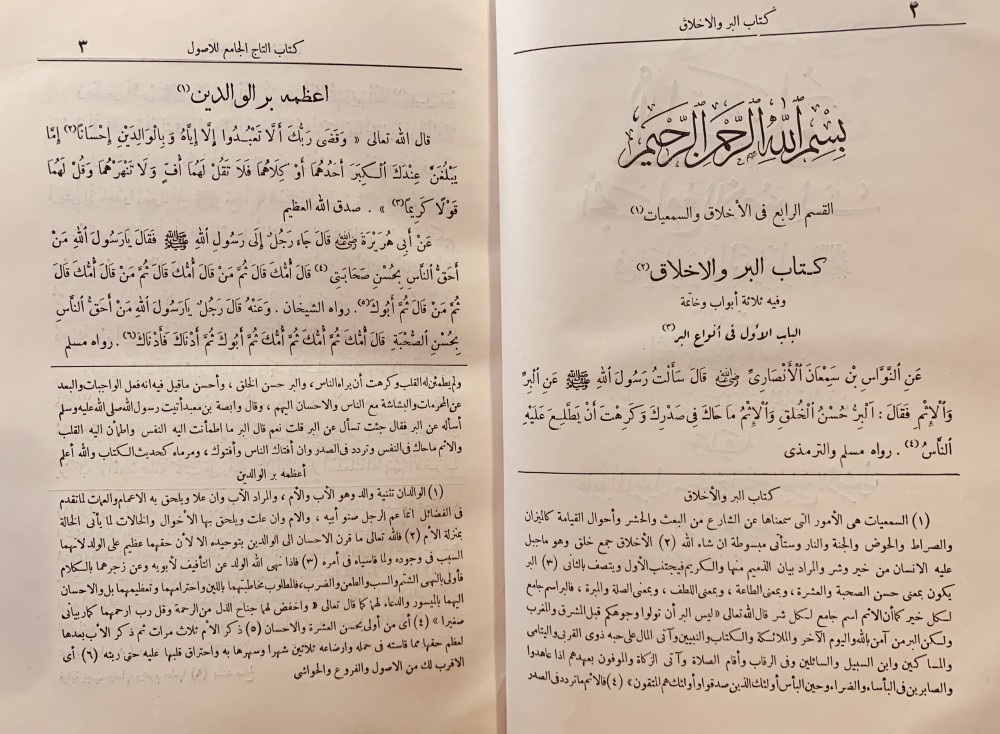 ٢
كتاب البر والاخلاق
بِسْمِ ٱللَّهِ ٱلرَّحْمَنِ ٱلرَّحِيمِ
القسم الرابع فى الأخلاق والسمعيات (١)
كتاب البر والاخلاق (٢)
وفيه ثلاثة أبواب وخاتمة
الباب الأول فى أنواع البر (٣)
عَنِ ٱلنَّوَّاسِ بْنِ سَمْعَانَ ٱلْأَنْصَارِيِّ رضي الله عنه قَالَ سَأَلْتُ رَسُولَ ٱللهِ ﷺ عَنِ ٱلْبِرِّ
وَٱلْإِثْمِ فَقَالَ : ٱلْبِرُّ حُسْنُ ٱلْخُلُقِ وَٱلْإِثْمُ مَا حَاكَ فِى صَدْرِكَ وَكَرِهْتَ أَنْ يَطَّلِعَ عَلَيْهِ
ٱلنَّاسُ (٤) . رواه مسلم والترمذى
كتاب البر والأخلاق
(١) السمعيات هى الأمور التى سمعناها عن الشارع من البعث والحشر وأحوال القيامة كالميزان
والصراط والحوض والجنة والنار وستأتى مبسوطة ان شاء الله (٢) الأخلاق جمع خلق وهو ماجبل
عليه الانسان من خير وشر والمراد بيان الذميم منها والكريم فيجتنب الأول ويتصف بالثانى (٣) البر
يكون بمعنى حسن الصحبة والعشرة ، وبمعنى الطاعة ، وبمعنى اللطف ، وبمعنى الصلة والمبرة ، فالبر اسم جامع
لسكل خير كما أن الاثم اسم جامع لسكل شر قال الله تعالى «ليس البر أن تولوا وجوهكم قبل المشرق والمغرب
ولسكن البر من آمن بالله واليوم الآخر والملائكة والكتاب والنبيين وآتى المال على حبه ذوى القربى واليتامى
والمساكين وابن السبيل والسائلين وفى الرقاب وأقام الصلاة وآتى الزكاة والموفون بعهدهم اذا عاهدوا
والصابرين فى البأساء والضراء وحين البأس أولئك الذين صدقوا وأولئك هم المتقون» (٤) فالاثم ما تردد فى الصدر
كتاب التاج الجامع للاصول
٣
اعظمه بر الوالدين (١)
قال الله تعالى « وَقَضَى رَبُّكَ أَلَّا تَعْبُدُوا إِلَّا إِيَّاهُ وَبِالْوَالِدَيْنِ إِحْسَانًا (٢) إِمَّا
يَبْلُغَنَّ عِنْدَكَ ٱلْكِبَرَ أَحَدُهُمَا أَوْ كِلَاهُمَا فَلَا تَقُلْ لَهُمَا أُفٍّ وَلَا تَنْهَرْهُمَا وَقُلْ لَهُمَا
قَوْلًا كَرِيمًا (٣) » . صدق الله العظيم
عَنْ أَبِى هُرَيْرَةَ رضي الله عنه قَالَ جَاءَ رَجُلٌ إِلَى رَسُولِ ٱللهِ ﷺ فَقَالَ يَارَسُولَ ٱللهِ مَنْ
أَحَقُّ ٱلنَّاسِ بِحُسْنِ صَحَابَتِى (٤) قَالَ أُمُّكَ قَالَ ثُمَّ مَنْ قَالَ أُمُّكَ قَالَ ثُمَّ مَنْ قَالَ أُمُّكَ قَالَ
ثُمَّ مَنْ قَالَ ثُمَّ أَبُوكَ (٥) . رواه الشيخان . وَعَنْهُ قَالَ رَجُلٌ يَارَسُولَ ٱللهِ مَنْ أَحَقُّ ٱلنَّاسِ
بِحُسْنِ ٱلصُّحْبَةِ قَالَ أُمُّكَ ثُمَّ أُمُّكَ ثُمَّ أُمُّكَ ثُمَّ أَبُوكَ ثُمَّ أَدْنَاكَ فَأَدْنَاكَ (٦) . رواه مسلم
ولم يطمئن له القلب وكرهت أن يراه الناس ، والبر حسن الخلق ، وأحسن ماقيل فيه انه فعل الواجبات والبعد
عن المحرمات والبشاشة مع الناس والاحسان اليهم ، وقال وابصة بن معبد أتيت رسول الله صلى الله عليه وسلم
أسأله عن البر فقال جئت تسأل عن البر قلت نعم قال البر ما اطمأنت اليه النفس واطمأن اليه القلب
والاثم ماحاك فى النفس وتردد فى الصدر وان أفتاك الناس وأفتوك ، ومرماه كحديث الكتاب والله أعلم
أعظمه بر الوالدين
(١) الوالدان تثنية والد وهو الأب والأم ، والمراد الأب وان علا ويلحق به الاعمام والعمات لما تقدم
فى الفضائل انما عم الرجل صنو أبيه ، والام وان علت ويلحق بها الأخوال والخالات لما يأتى الخالة
بمنزلة الأم (٢) فالله تعالى ما قرن الاحسان الى الوالدين بتوحيده الا لأن حقهما عظيم على الولد لأنهما
السبب فى وجوده ولما قاسياه فى أمره (٣) فاذا نهى الله الولد عن التأفيف لأبويه وعن زجرهما بالكلام
فأولى بالنهى الشتم والسب والطعن والضرب ، فالمطلوب مخاطبتهما باللين واحترامهما وتعظيمهما بل والاحسان
اليهما بالميسور والدعاء لهما كما قال تعالى « واخفض لهما جناح الذل من الرحمة وقل رب ارحمهما كما ربيانى
صغيرا » (٤) أى من أولى بحسن العشرة والاحسان (٥) ذكر الأم ثلاث مرات ثم ذكر الأب بعدها
لعظم حقها مما قاسته فى حمله وارضاعه ثلاثين شهرا وسهرها به واحتراق قلبها عليه حتى ربته (٦) أى
الاقرب لك من الاصول والفروع والحواشى